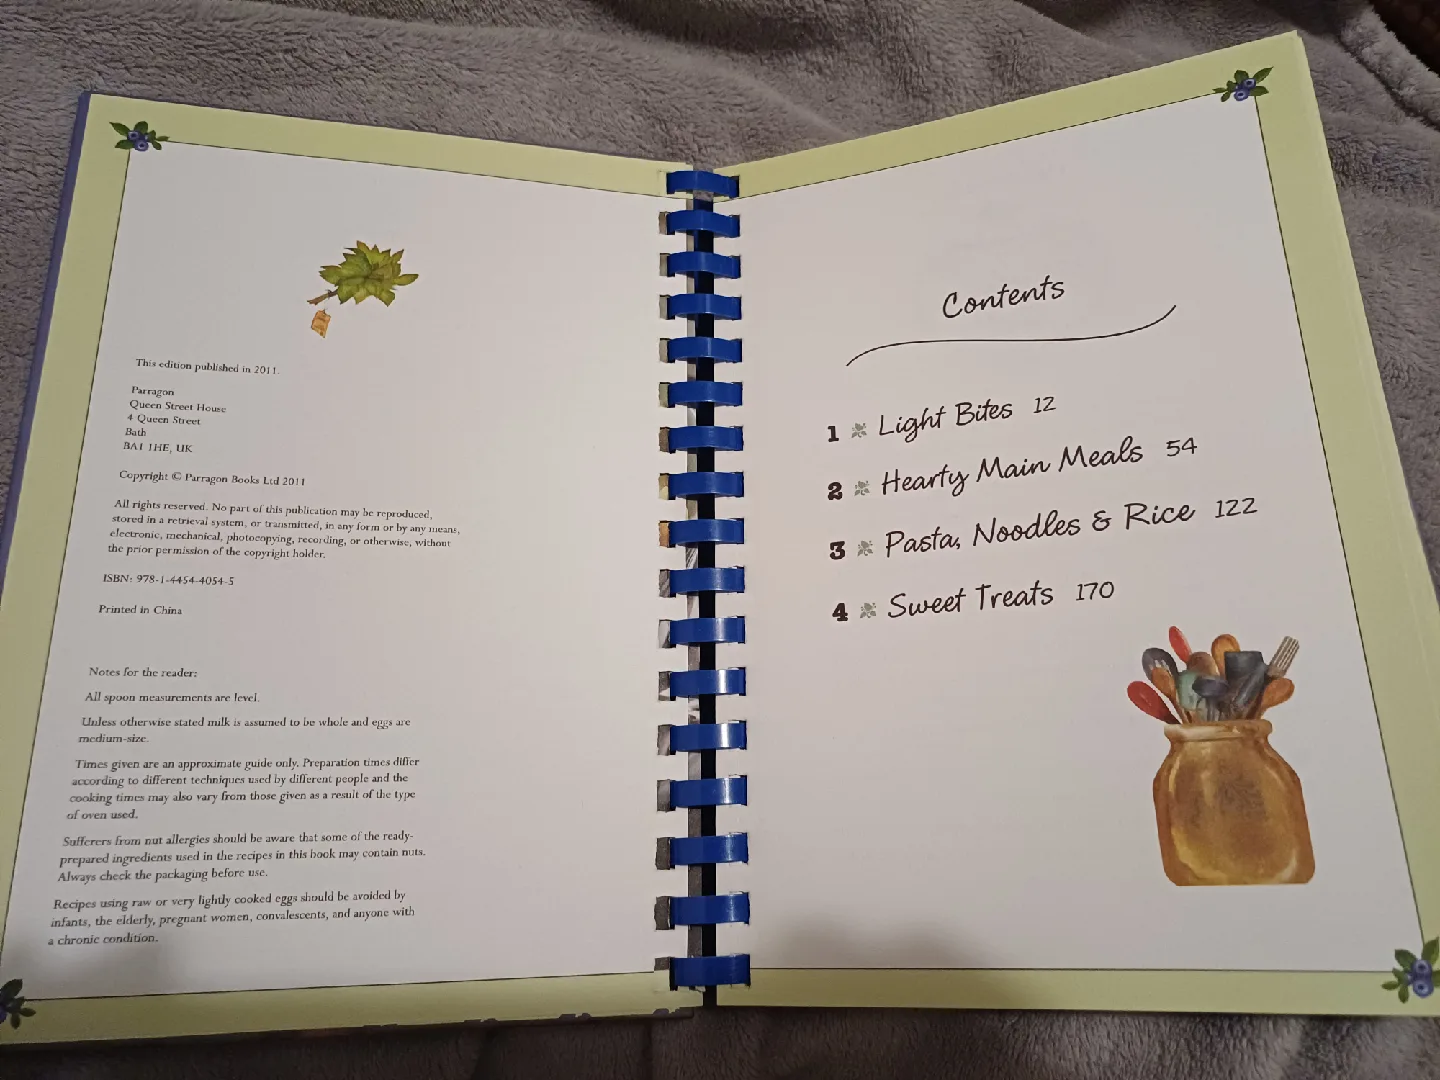 This edition published in 2011.
Parragon
Queen Street House
4 Queen Street
Bath
BA1 1HE, UK
Copyright © Parragon Books Ltd 2011
All rights reserved. No part of this publication may be reproduced,
stored in a retrieval system, or transmitted, in any form or by any means,
electronic, mechanical, photocopying, recording, or otherwise, without
the prior permission of the copyright holder.
ISBN: 978-1-4454-4054-5
Printed in China
Notes for the reader:
All spoon measurements are level.
Unless otherwise stated milk is assumed to be whole and eggs are
medium-size.
Times given are an approximate guide only. Preparation times differ
according to different techniques used by different people and the
cooking times may also vary from those given as a result of the type
of oven used.
Sufferers from nut allergies should be aware that some of the ready-
prepared ingredients used in the recipes in this book may contain nuts.
Always check the packaging before use.
Recipes using raw or very lightly cooked eggs should be avoided by
infants, the elderly, pregnant women, convalescents, and anyone with
a chronic condition.
Contents
1 Light Bites 12
2 Hearty Main Meals 54
3 Pasta, Noodles & Rice 122
4 Sweet Treats 170